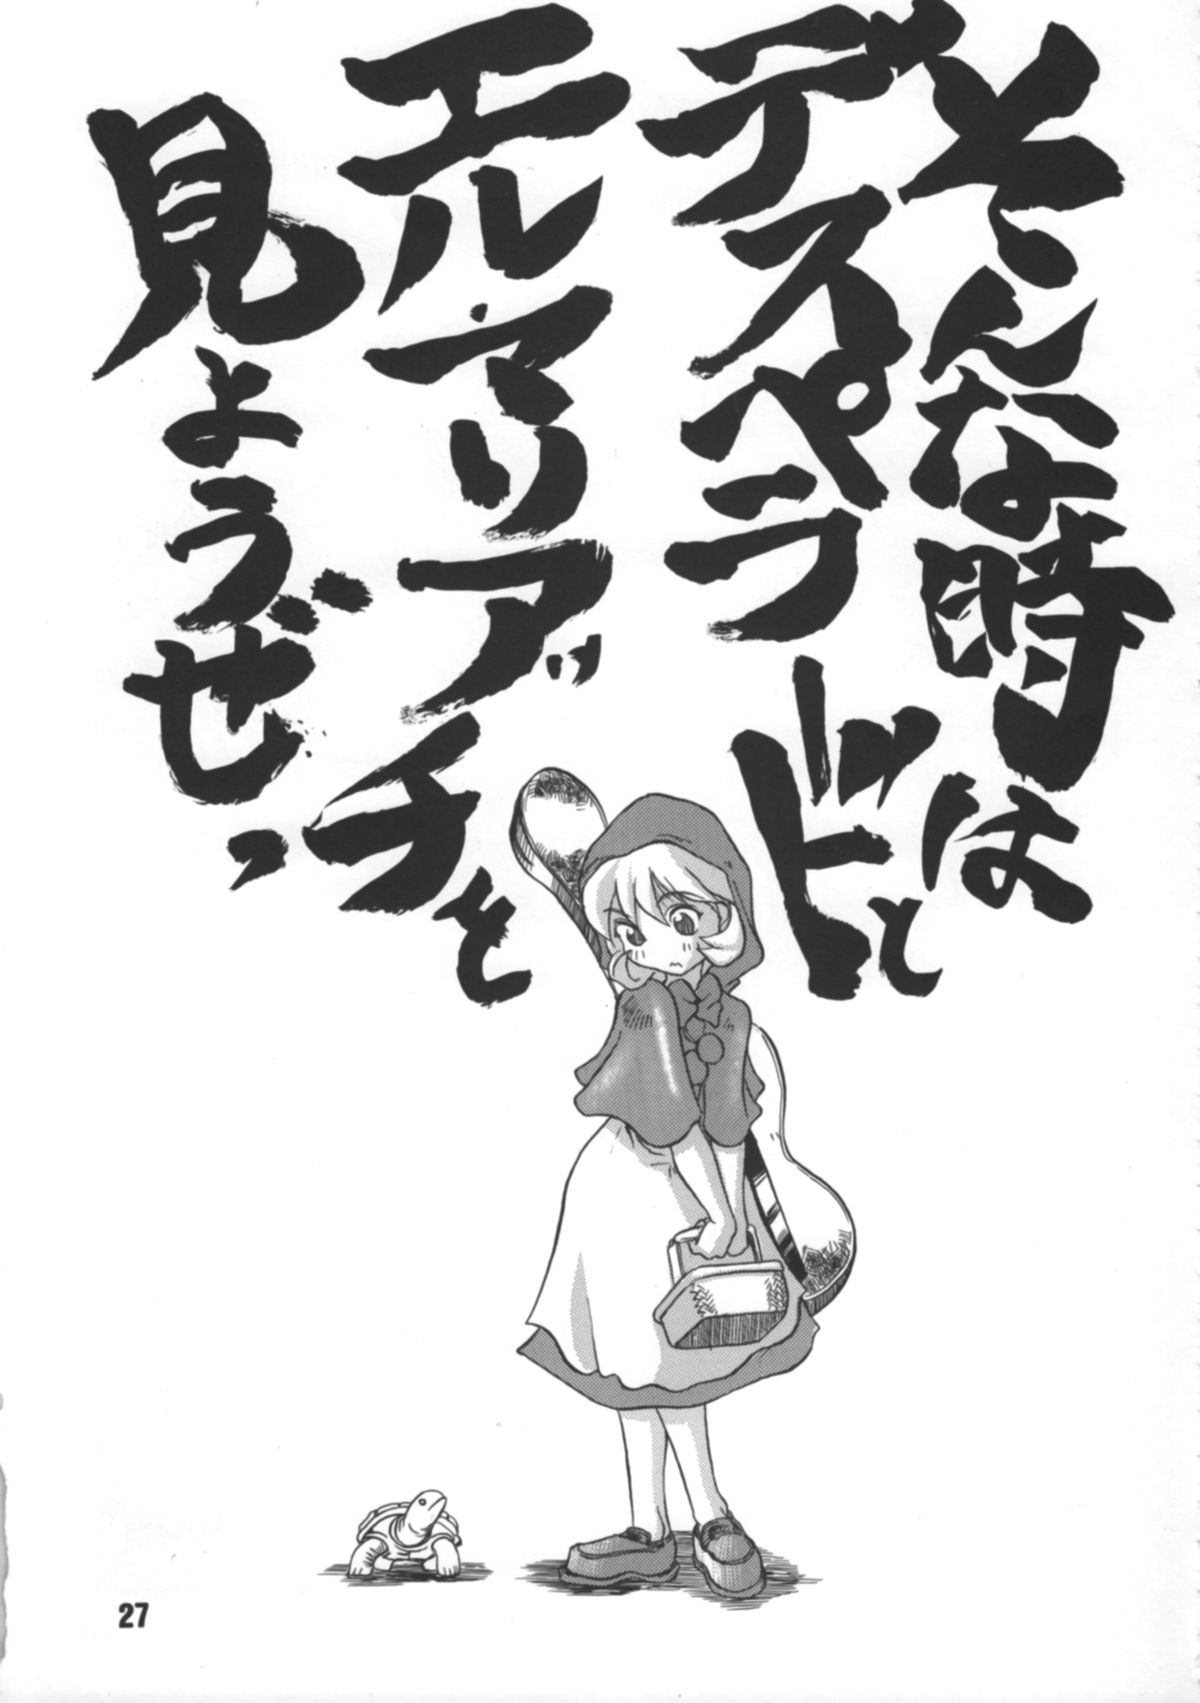 そんな時は
デスペラードと
エル・マリアッチを
見ようぜっ
27